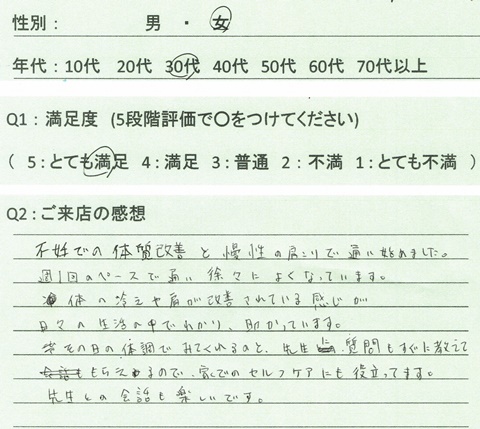 性別： 男 ・ 女
年代：10代 20代 30代 40代 50代 60代 70代以上
Q1：満足度 (5段階評価で〇をつけてください)
( 5：とても満足 4：満足 3：普通 2：不満 1：とても不満 )
Q2：ご来店の感想
不妊での体質改善と慢性の肩こりで通い始めました。
週1回のペースで通い徐々によくなっています。
体の冷えや肩が改善されている感じが
日々の生活の中でわかり、助かっています。
その日の体調でみてくれるのと、先生に質問もすぐに教えて
もらえるので、家でのセルフケアにも役立ってます。
先生との会話も楽しいです。